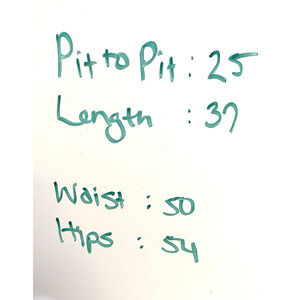 Pit to Pit : 25
Length : 37
Waist : 50
Hips : 54